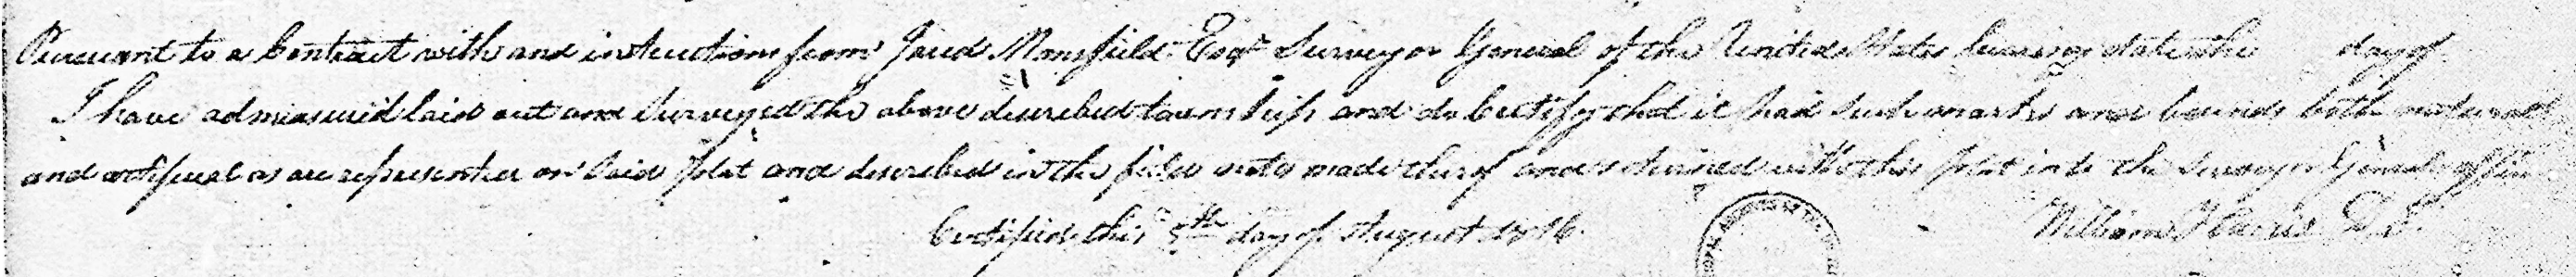 Pursuant to a Contract with and instructions from Jared Mansfield Esqr Surveyor General of the United States bearing date the day of
I have admeasured laid out and Surveyed the above described township and do Certify that it had such marks and bounds both natural
and artificial as are represented on said plat and described in the field notes made thereof and returned with this plat into the Surveyor Generals office
Certified this 5th day of August 1806.
William Harris D.S.